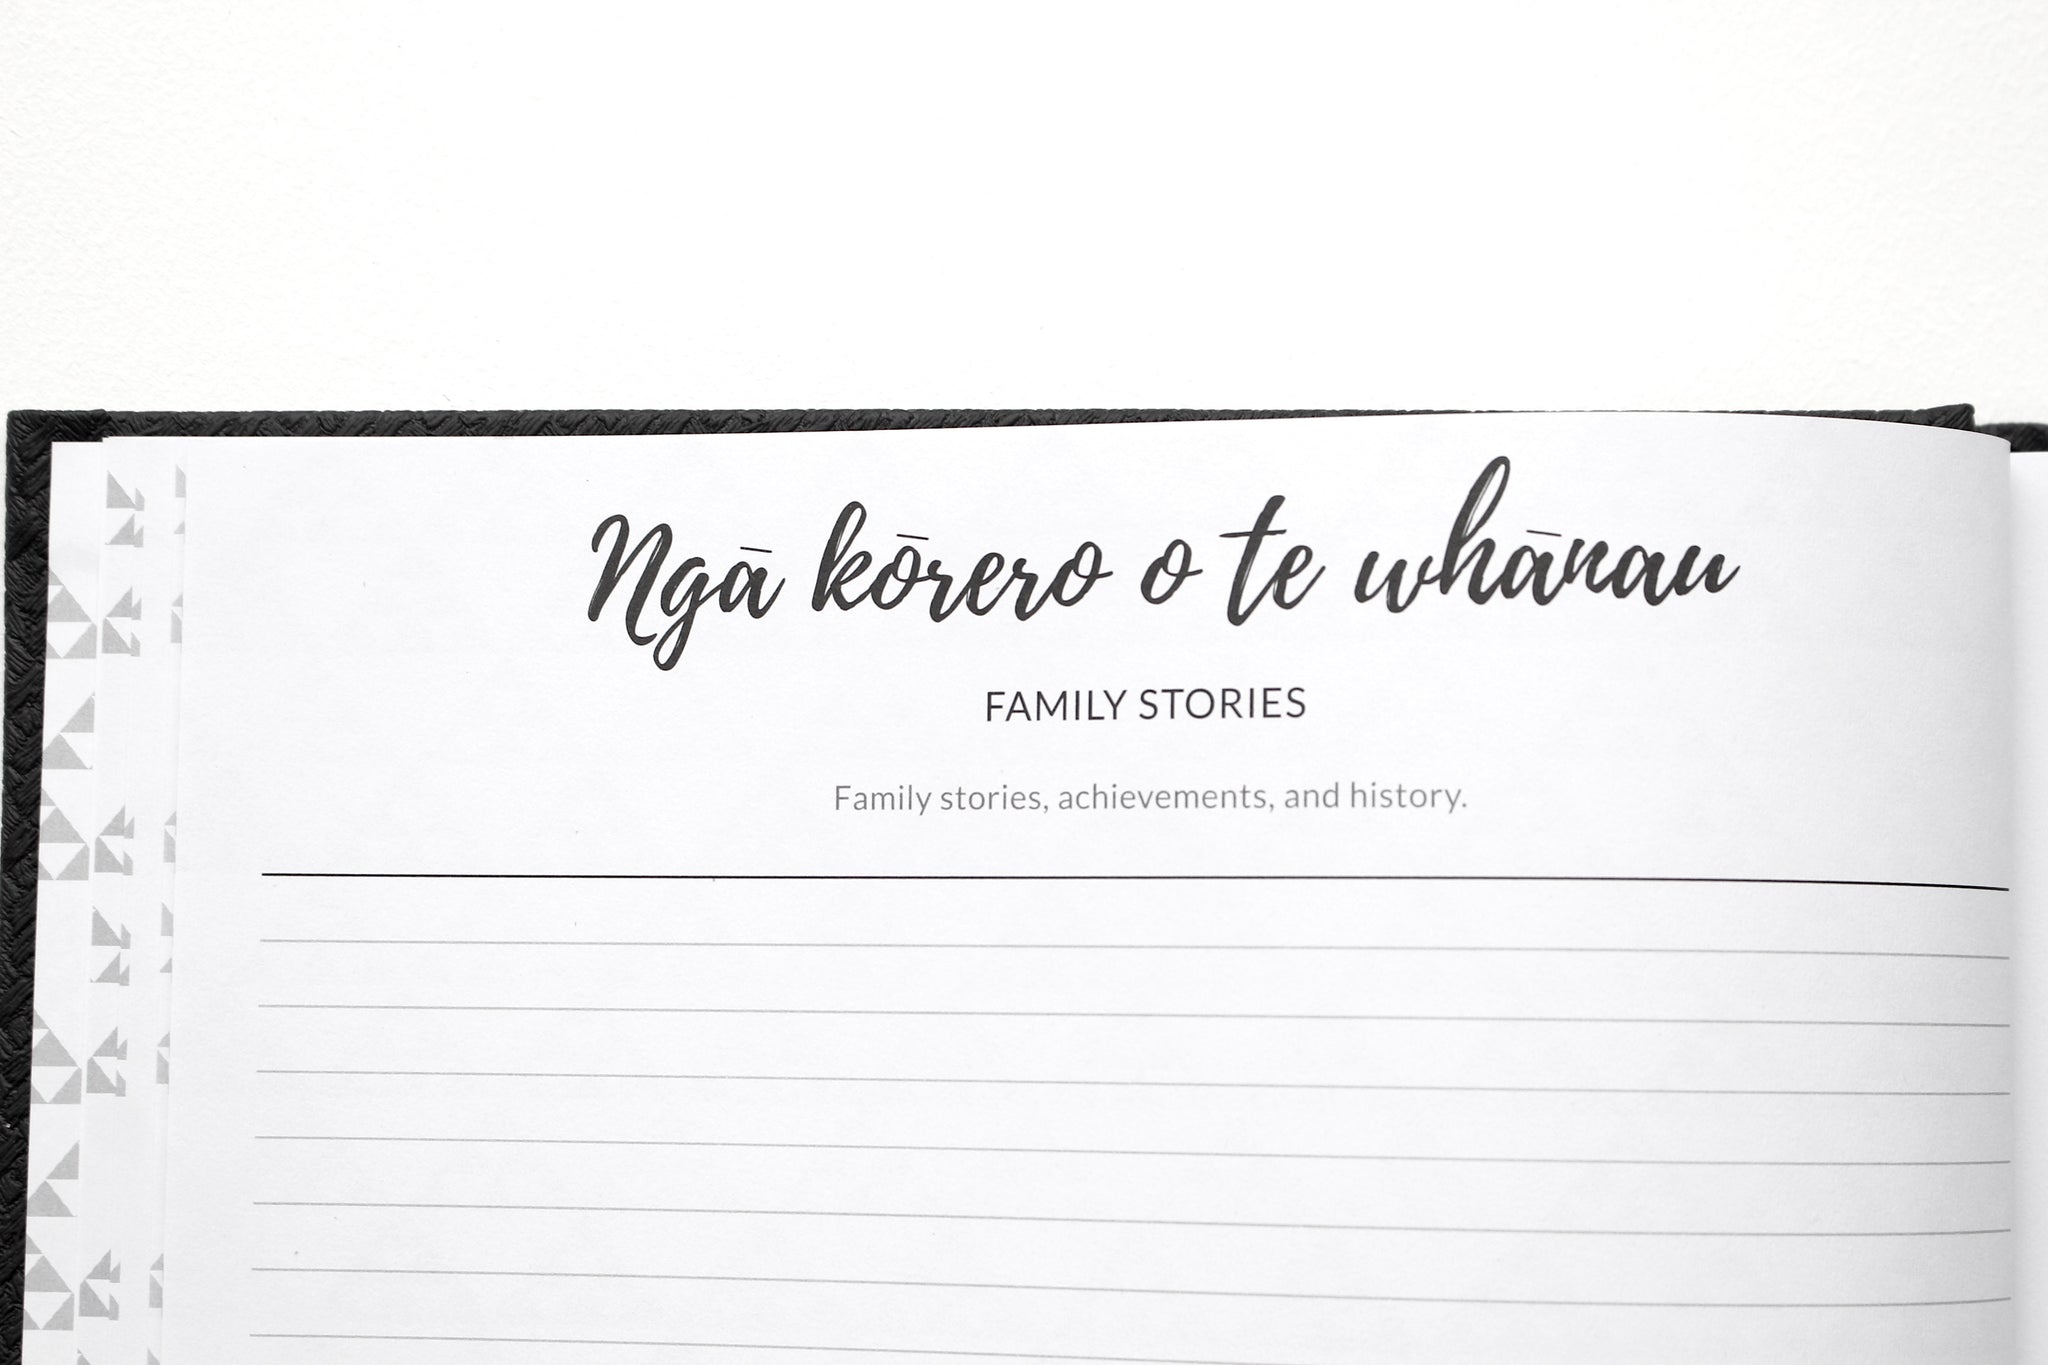 Ngā kōrero o te whānau
FAMILY STORIES
Family stories, achievements, and history.